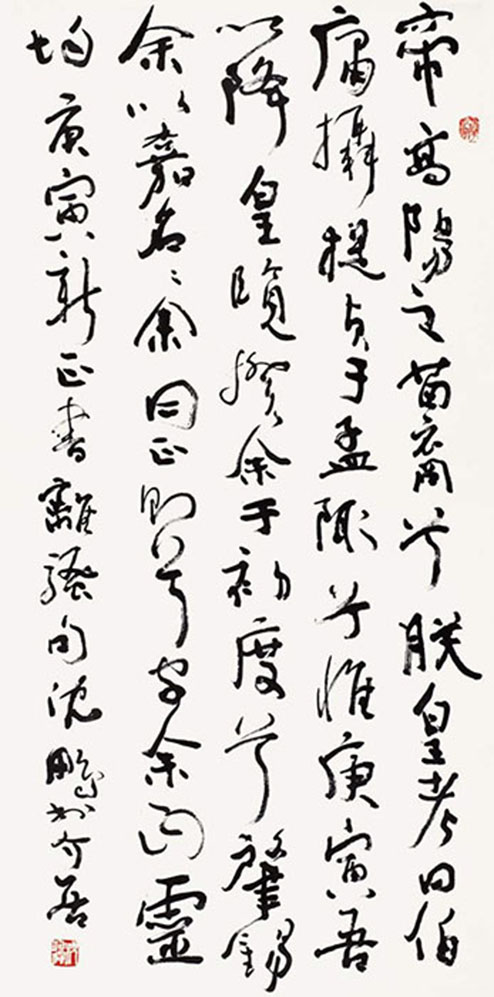 帝高陽之苗裔兮朕皇考曰伯
庸攝提貞于孟陬兮惟庚寅吾
以降皇覽揆余于初度兮肇錫
余以嘉名々余曰正則兮字余曰靈
均庚寅新正書離騷句沈鵬於介居